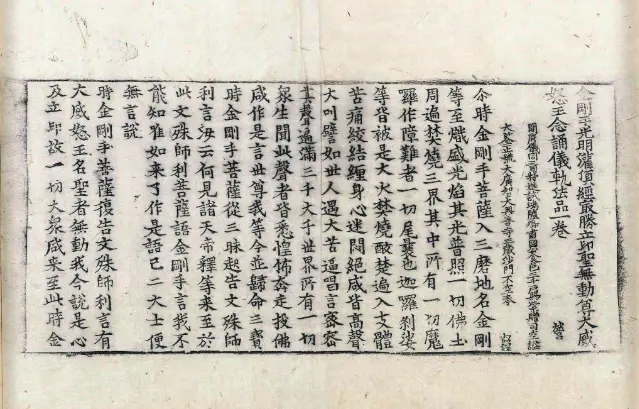 金剛手光明灌頂經最勝立印聖無動尊大威
怒王念誦儀軌法品一卷 營
開府儀同三司特進試鴻臚卿肅國公食邑三千戶賜紫贈司空謚
大鑒正號大廣智大興善寺三藏沙門不空奉 詔譯
尒時金剛手菩薩入三磨地名金剛
等至熾盛光焰其光普照一切佛土
周遍焚燒三界其中所有一切魔
羅作障難者一切尾曩也迦羅刹娑
等皆被是大火焚燒酸楚遍入支體
苦痛絞結纏身心迷悶絕咸皆高聲
大叫譬如世人遇大苦逼唱言密密
其聲遍滿三千大千世界所有一切
衆生聞此聲者皆悉惶怖奔走投佛
咸作是言世尊我等今並歸命三寶
時金剛手菩薩從三昧起告文殊師
利言汝云何見諸天帝釋等來至於
此文殊師利菩薩語金剛手言我不
能知唯如來了作是語已二大士便
無言說
時金剛手菩薩復告文殊師利言有
大威怒王名聖者無動我今說是心
及立印故一切大衆咸來至此時金